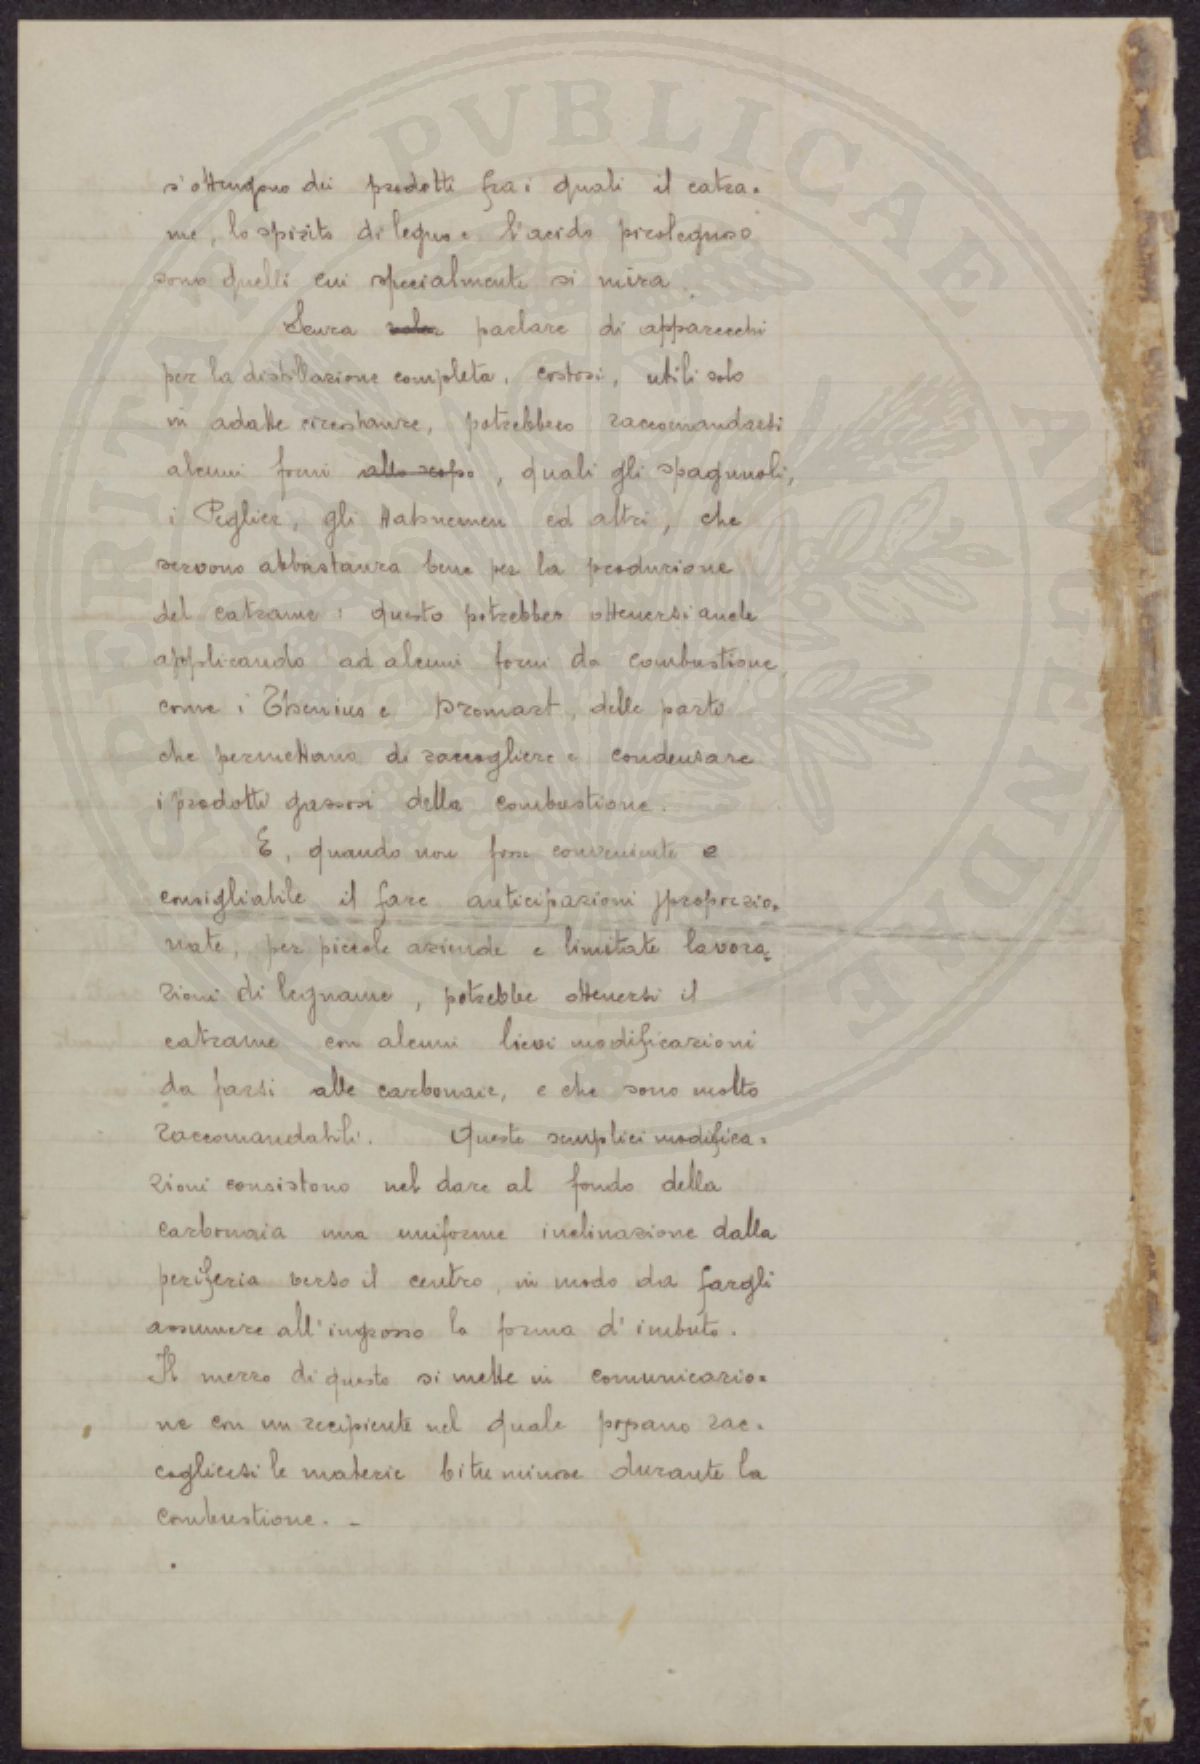 s'ottengono dei prodotti fra i quali il catra=
me, lo spirito di legno e l'acido pirolegnoso
sono quelli cui specialmente si mira.
Senza voler parlare di apparecchi
per la distillazione completa, costosi, utili solo
in adatte circostanze, potrebbero raccomandarsi
alcuni forni allo scopo, quali gli spagnuoli,
i Pegliez, gli Hahnemen ed altri, che
servono abbastanza bene per la produzione
del catrame: questo potrebbesi ottenersi anche
applicando ad alcuni forni da combustione,
come i Thenius e Dromart, delle parti
che permettano di raccogliere e condensare
i prodotti gassosi della combustione.
E, quando non fosse conveniente e
consigliabile il fare anticipazioni proporzio=
nate, per piccole aziende e limitate lavora=
zioni di legname, potrebbe ottenersi il
catrame con alcuni lievi modificazioni
da farsi alle carbonaie, e che sono molto
raccomandabili. Queste semplici modifica=
zioni consistono nel dare al fondo della
carbonaia una uniforme inclinazione dalla
periferia verso il centro, in modo da fargli
assumere all'ingrosso la forma d'imbuto.
Il mezzo di questo si mette in comunicazio=
ne con un recipiente nel quale possano rac=
cogliersi le materie bituminose durante la
combustione. -
PERITAPERITA PVBLICAE AVGENDAE